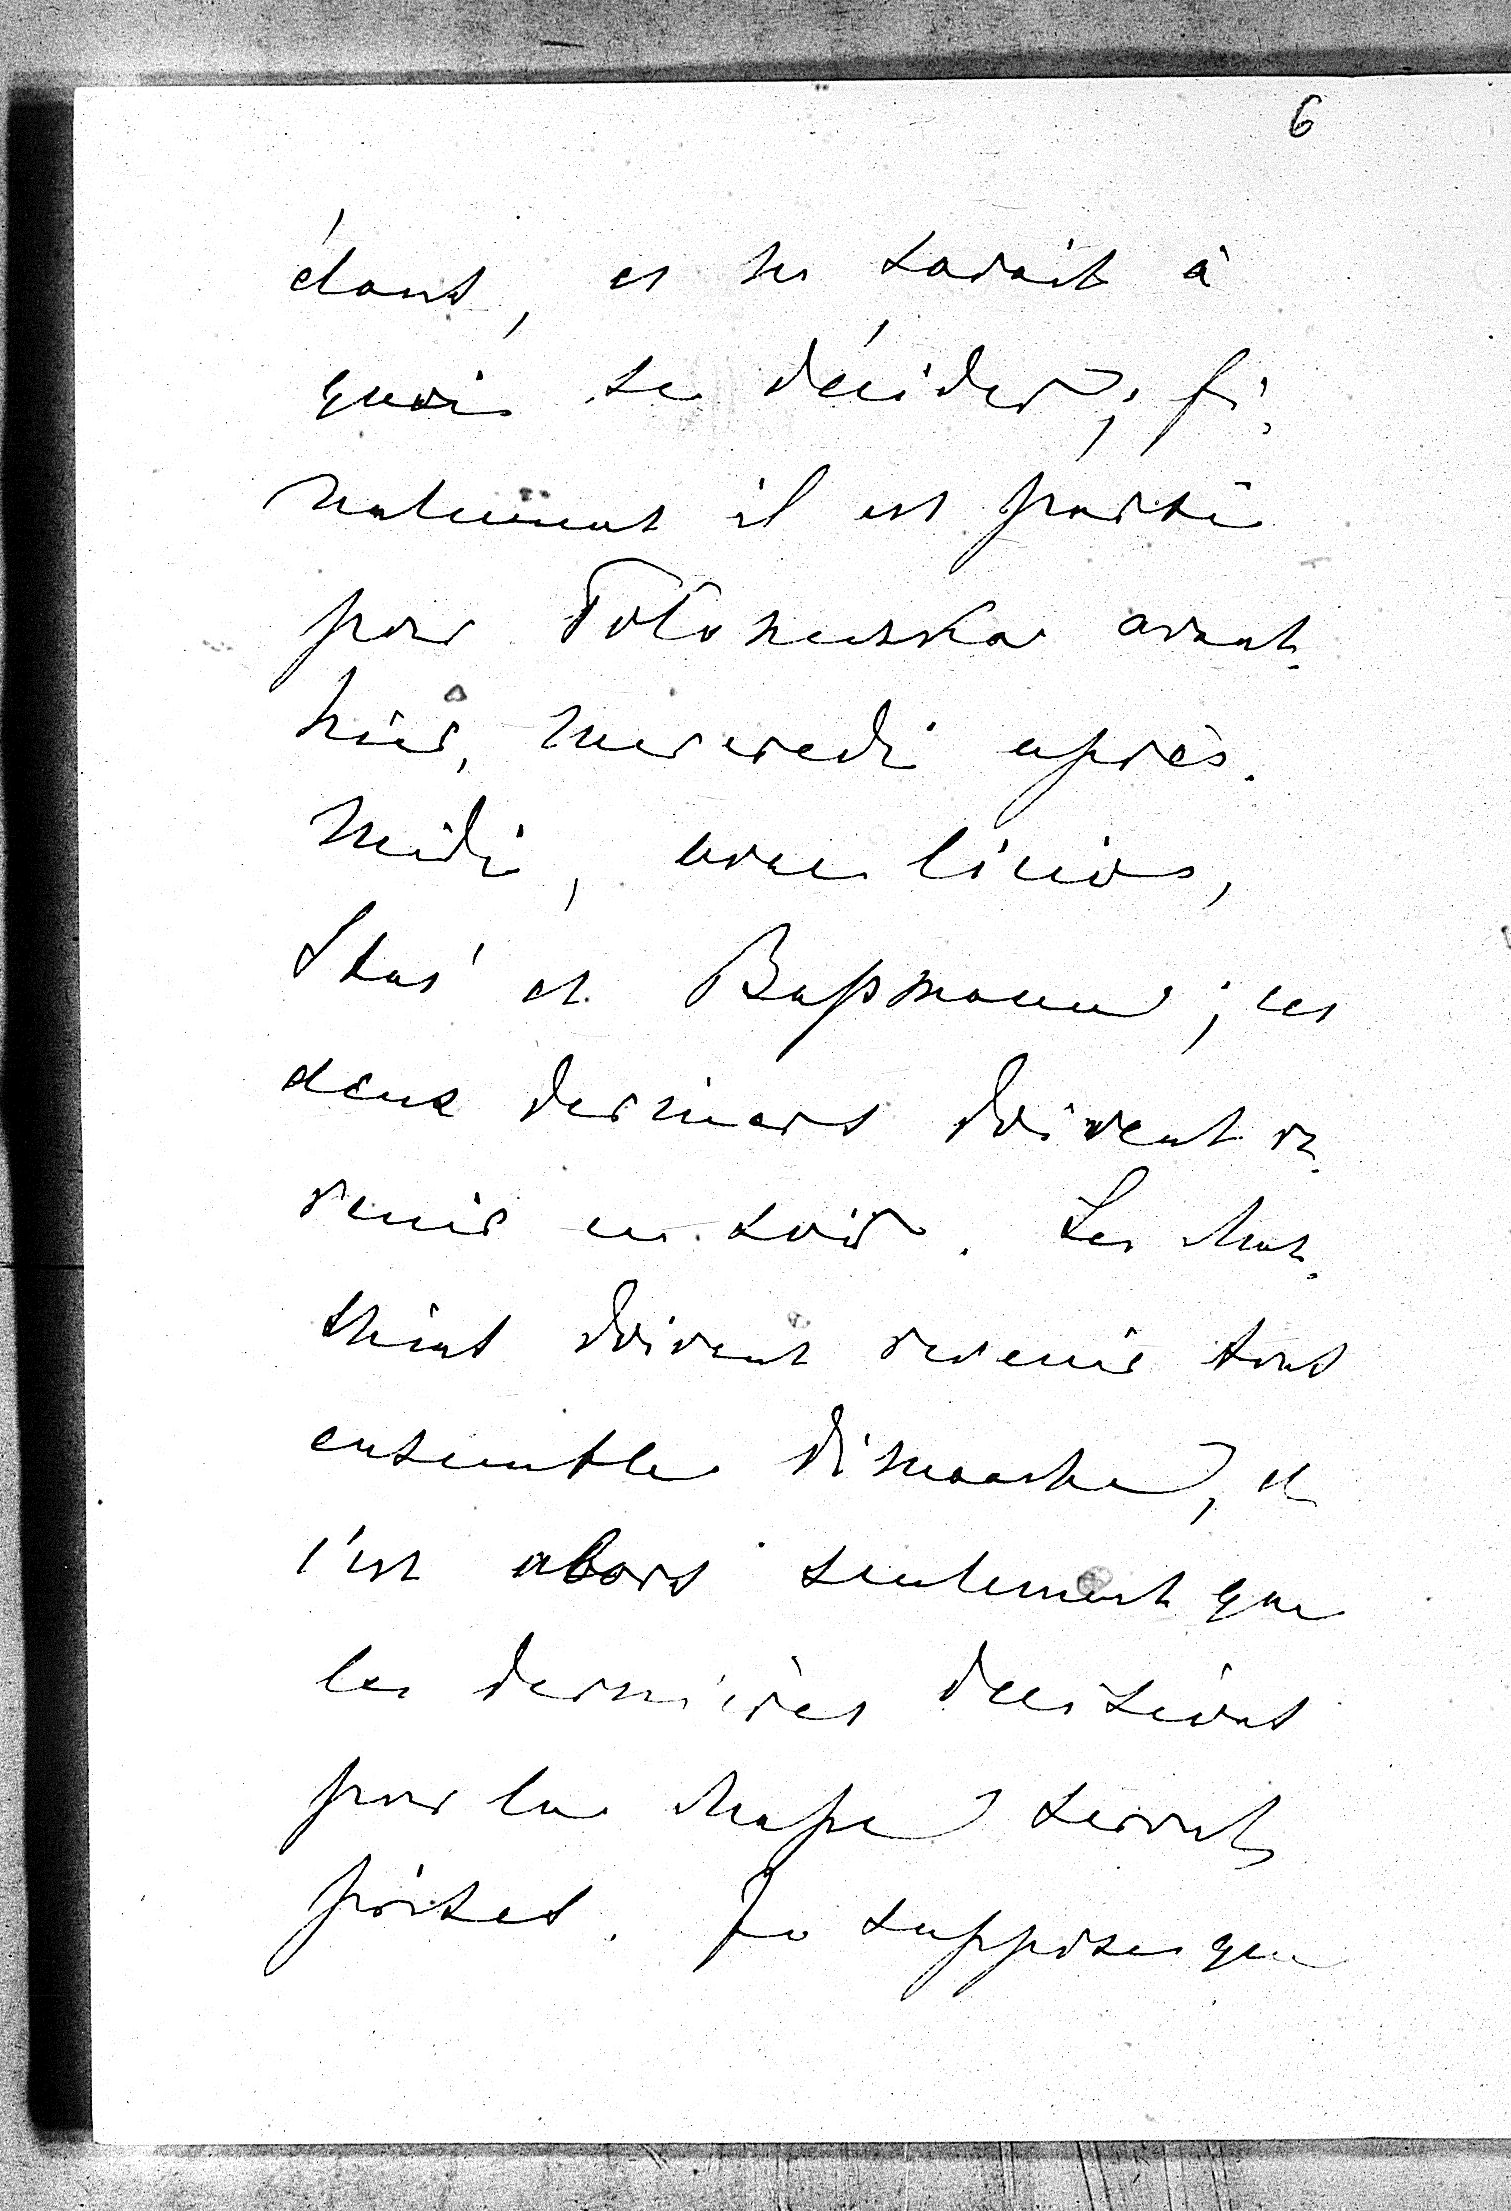 6
dant, et ne savait à
quoi se décider; fi-
nalement il est parti
pour Tołoneuska avant-
hier, mercredi après-
midi, avec
Staś et Bassmann; ces
deux derniers doivent re-
venir ce soir. Les chas-
seurs doivent revenir tous
ensemble dimanche, et
c'est alors seulement que
les dernières décisions
pour la chasse seront
prises. Je suppose que